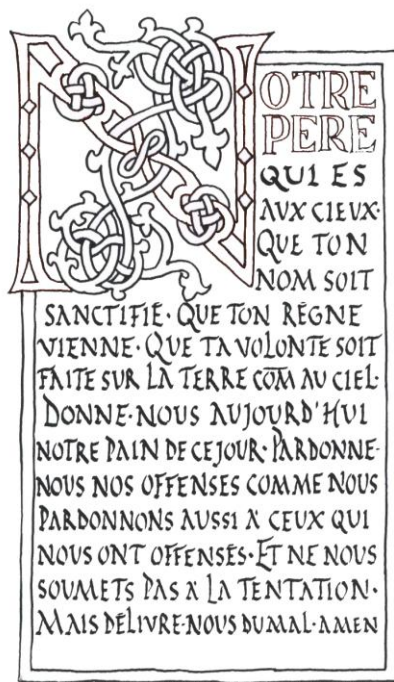 NOTRE
PERE
QUI ES
AUX CIEUX·
QUE TON
NOM SOIT
SANCTIFIÉ· QUE TON RÈGNE
VIENNE· QUE TA VOLONTE SOIT
FAITE SUR LA TERRE COM̄ AU CIEL·
DONNE·NOUS AUJOURD'HUI
NOTRE PAIN DE CE JOUR· PARDONNE-
NOUS NOS OFFENSES COMME NOUS
PARDONNONS AUSSI À CEUX QUI
NOUS ONT OFFENSÉS· ET NE NOUS
SOUMETS PAS À LA TENTATION·
MAIS DÉLIVRE·NOUS DU MAL·AMEN